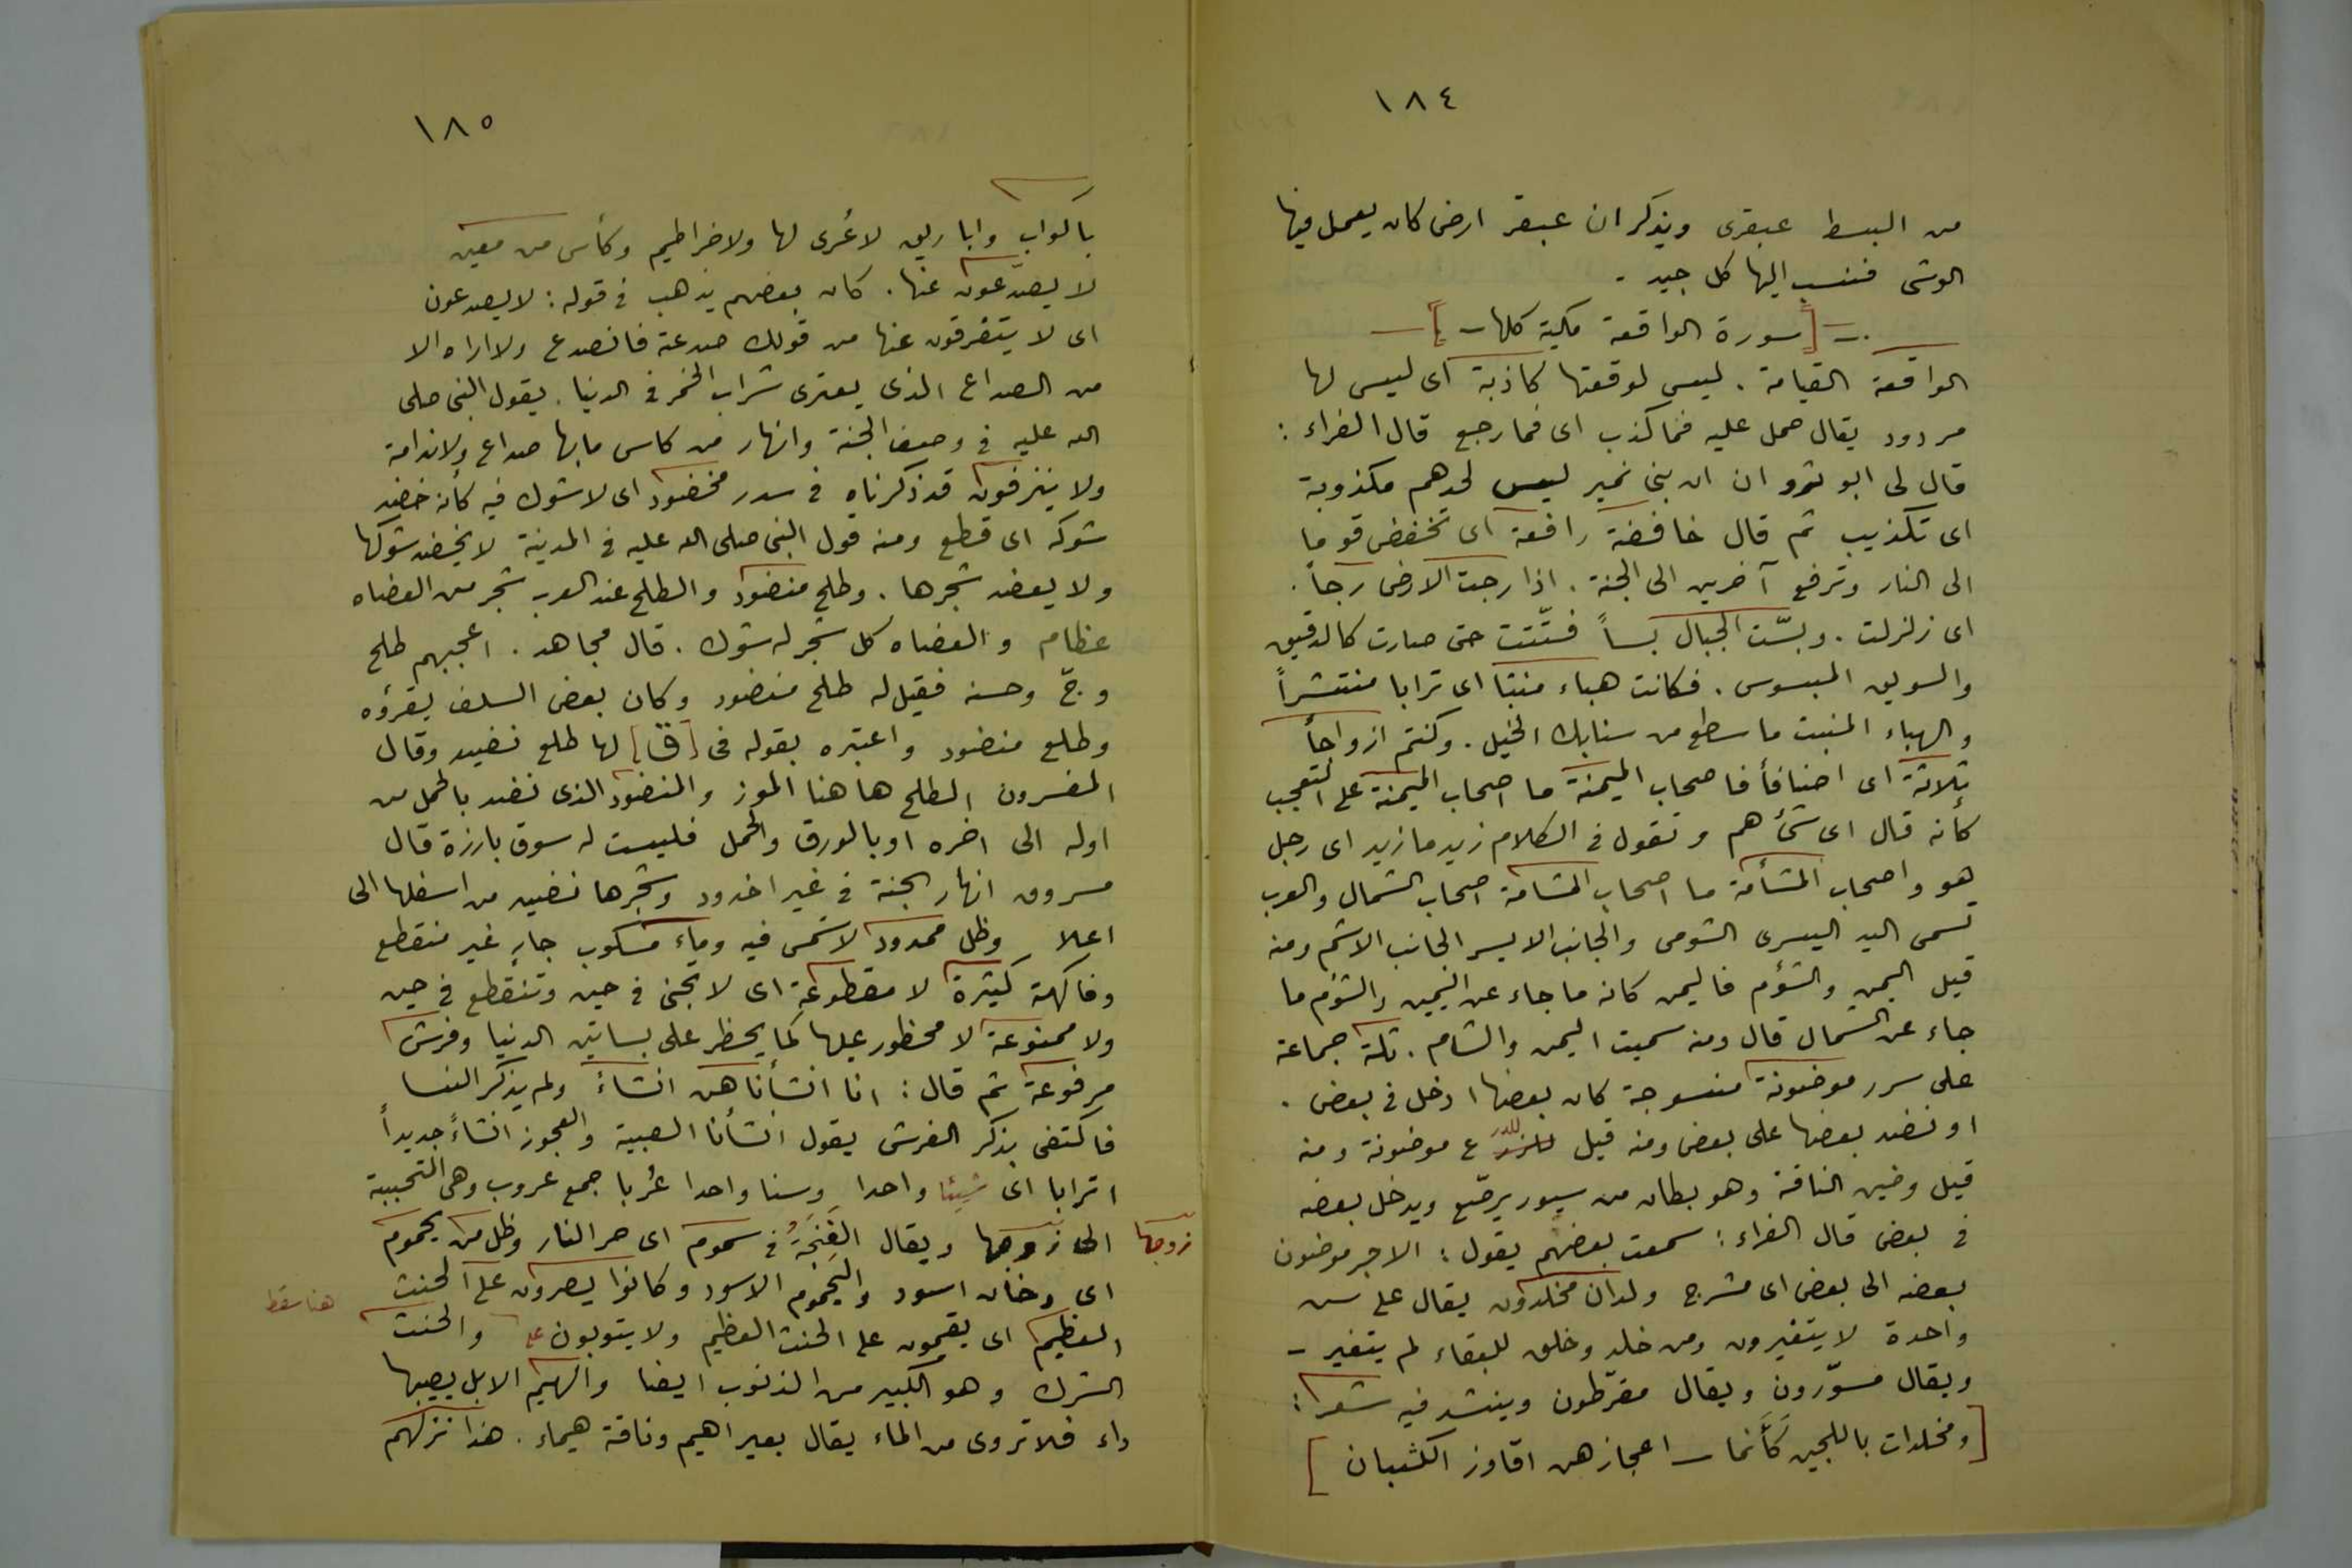 ١٨٤
من البسط عبقرى ويذكر ان عبقر ارض كان يعمل فيها
الوشى فنسب اليها كل جيد .
[سورة الواقعة مكية كلها]
الواقعة القيامة . ليس لوقعتها كاذبة اى ليس لها
مردود يقال حمل عليه فما كذب اى فما رجع قال الفراء :
قال لى ابو ان ان بنى نمير ليس لحدهم مكذوبة
اى تكذيب ثم قال خافضة رافعة اى تخفض قوما
الى النار وترفع آخرين الى الجنة . اذا رجت الارض رجاً .
اى زلزلت . وبسّت الجبال بساً فتّتت حتى صارت كالدقيق
والسويق المبسوس . فكانت هباء منبثا اى ترابا منتشراً
والهباء المنبث ما سطع من سنابك الخيل . وكنتم ازواجاً
ثلاثة اى اصنافاً فاصحاب الميمنة ما اصحاب الميمنة على التعجب
كأنه قال اى شئ هم وتقول فى الكلام زيد ما زيد اى رجل
هو واصحاب المشأمة ما اصحاب المشامة اصحاب الشمال والعرب
تسمى اليد اليسرى الشومى والجانب الايسر الجانب الاشم ومنه
قيل اليمن والشؤم فاليمن كانه ما جاء عن اليمين والشؤم ما
جاء عن الشمال قال ومنه سميت اليمن والشام . ثلة جماعة
على سرر موضونة منسوجة كان بعضها ادخل فى بعض .
او نضد بعضها على بعض ومنه قيل للدر ع موضونة ومنه
قيل وضين الناقة وهو بطان من سيور يرصّع ويدخل بعضه
فى بعض قال الفراء : سمعت بعضهم يقول : الاجر موضون
بعضه الى بعض اى مشرج ولدان مخلدون يقال على سن
واحدة لا يتغيرون ومن خلد وخلق للبقاء لم يتغير -
ويقال مسوّرون ويقال مقرّطون وينشد فيه شعرا :
[ومخلدات باللجين كأنما - اعجازهن اقاوز الكثبان]
١٨٥
باكواب واباريق لا عُرى لها ولا خراطيم وكأس من معين
لا يصدّعون عنها . كان بعضهم يذهب فى قوله : لا يصدعون
اى لا يتفرقون عنها من قولك صدعته فانصدع ولا اراه الا
من الصداع الذى يعترى شراب الخمر فى الدنيا . يقول النبى صلى
الله عليه فى وصف الجنة وانهار من كاس ما بها صداع ولا ندامة
ولا ينزفون قد ذكرناه فى سدر مخضود اى لا شوك فيه كأنه خضد
شوكه اى قطع ومنه قول النبى صلى الله عليه فى المدينة لا يخضد شوكها
ولا يعضد شجرها . وطلح منضود والطلح عند العرب شجر من العضاه
عظام والعضاه كل شجر له شوك . قال مجاهد . اعجبهم طلح
وجّ وحسنه فقيل له طلح منضود وكان بعض السلف يقرؤه
وطلع منضود واعتبره بقوله فى [ق] لها طلع نضيد وقال
المفسرون الطلح هاهنا الموز والمنضود الذى نضد بالحمل من
اوله الى اخره او بالورق والحمل فليست له سوق بارزة قال
مسروق انهار الجنة فى غير اخدود وشجرها نضيد من اسفلها الى
اعلا وظل ممدود لا شمس فيه وماء مسكوب جارٍ غير منقطع
وفاكهة كثيرة لا مقطوعة اى لا تجئ فى حين وتنقطع فى حين
ولا ممنوعة لا محظور عليها كما يحظر على بساتين الدنيا وفرش
مرفوعة ثم قال : انا انشأناهن انشاءً ولم يذكر النسا
فاكتفى بذكر الفرش يقول انشأنا الصبية والعجوز انشاءً جديداً
اترابا اى شيئا واحدا وسنا واحدا عُربا جمع عروب وهى المتحببة
الى زوجها ويقال الغَنِجَةُ فى سموم اى حر النار وظل من يحموم
زوجها
اى دخان اسود واليَحموم الاسود وكانوا يصرون على الحنث
هنا سقط
العظيم اى يقيمون على الحنث العظيم ولا يتوبون عـ والحنث
الشرك وهو الكبير من الذنوب ايضا والهيم الابل يصيبها
داء فلا تروى من الماء يقال بعير اهيم وناقة هيماء . هذا نزلهم